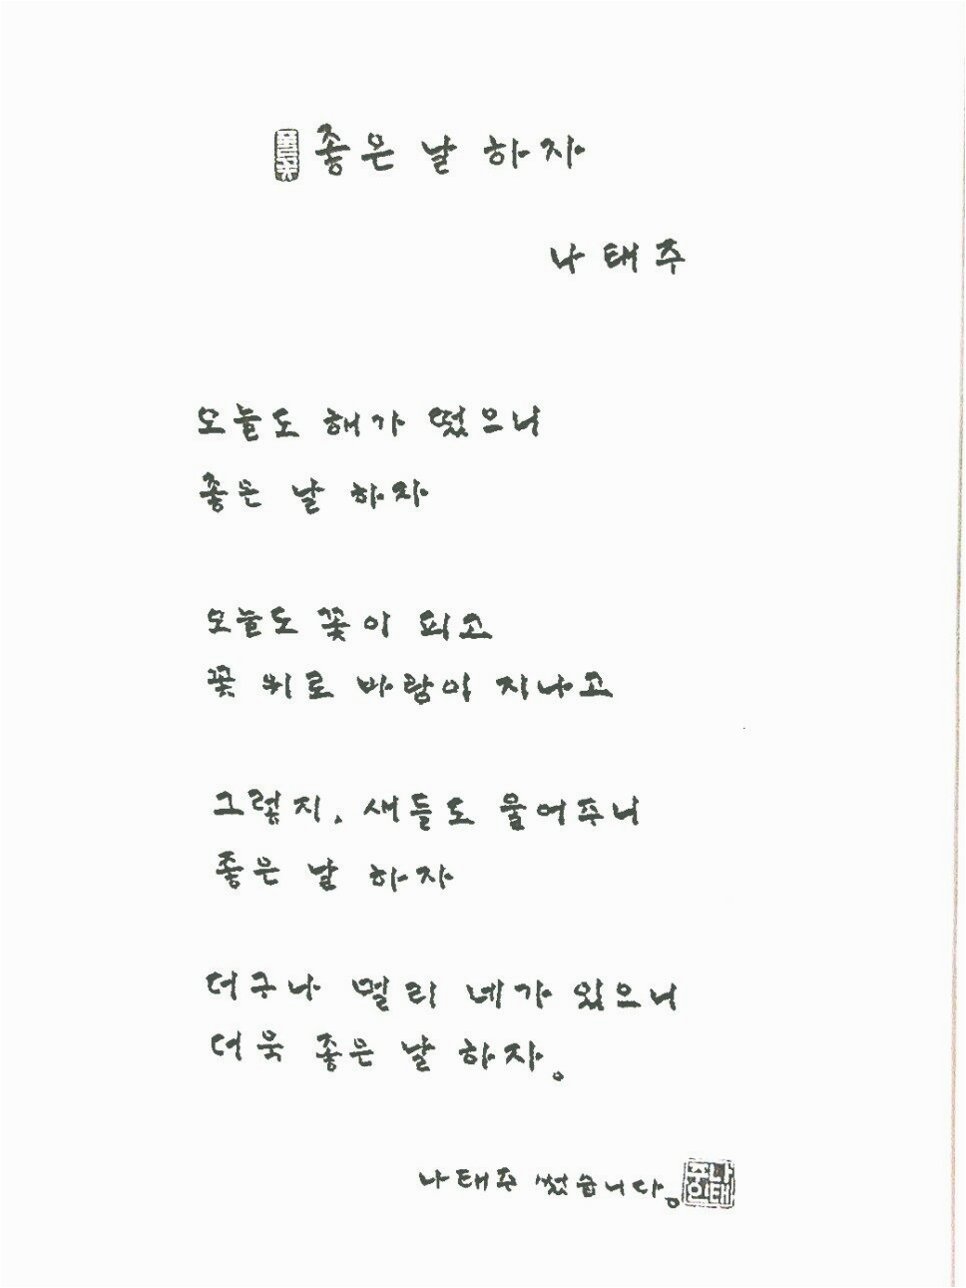 풀꽃 좋은 날 하자
나태주
오늘도 해가 떴으니
좋은 날 하자
오늘도 꽃이 피고
꽃 위로 바람이 지나고
그렇지, 새들도 울어주니
좋은 날 하자
더구나 멀리 네가 있으니
더욱 좋은 날 하자.
나태주 썼습니다.
나태주인